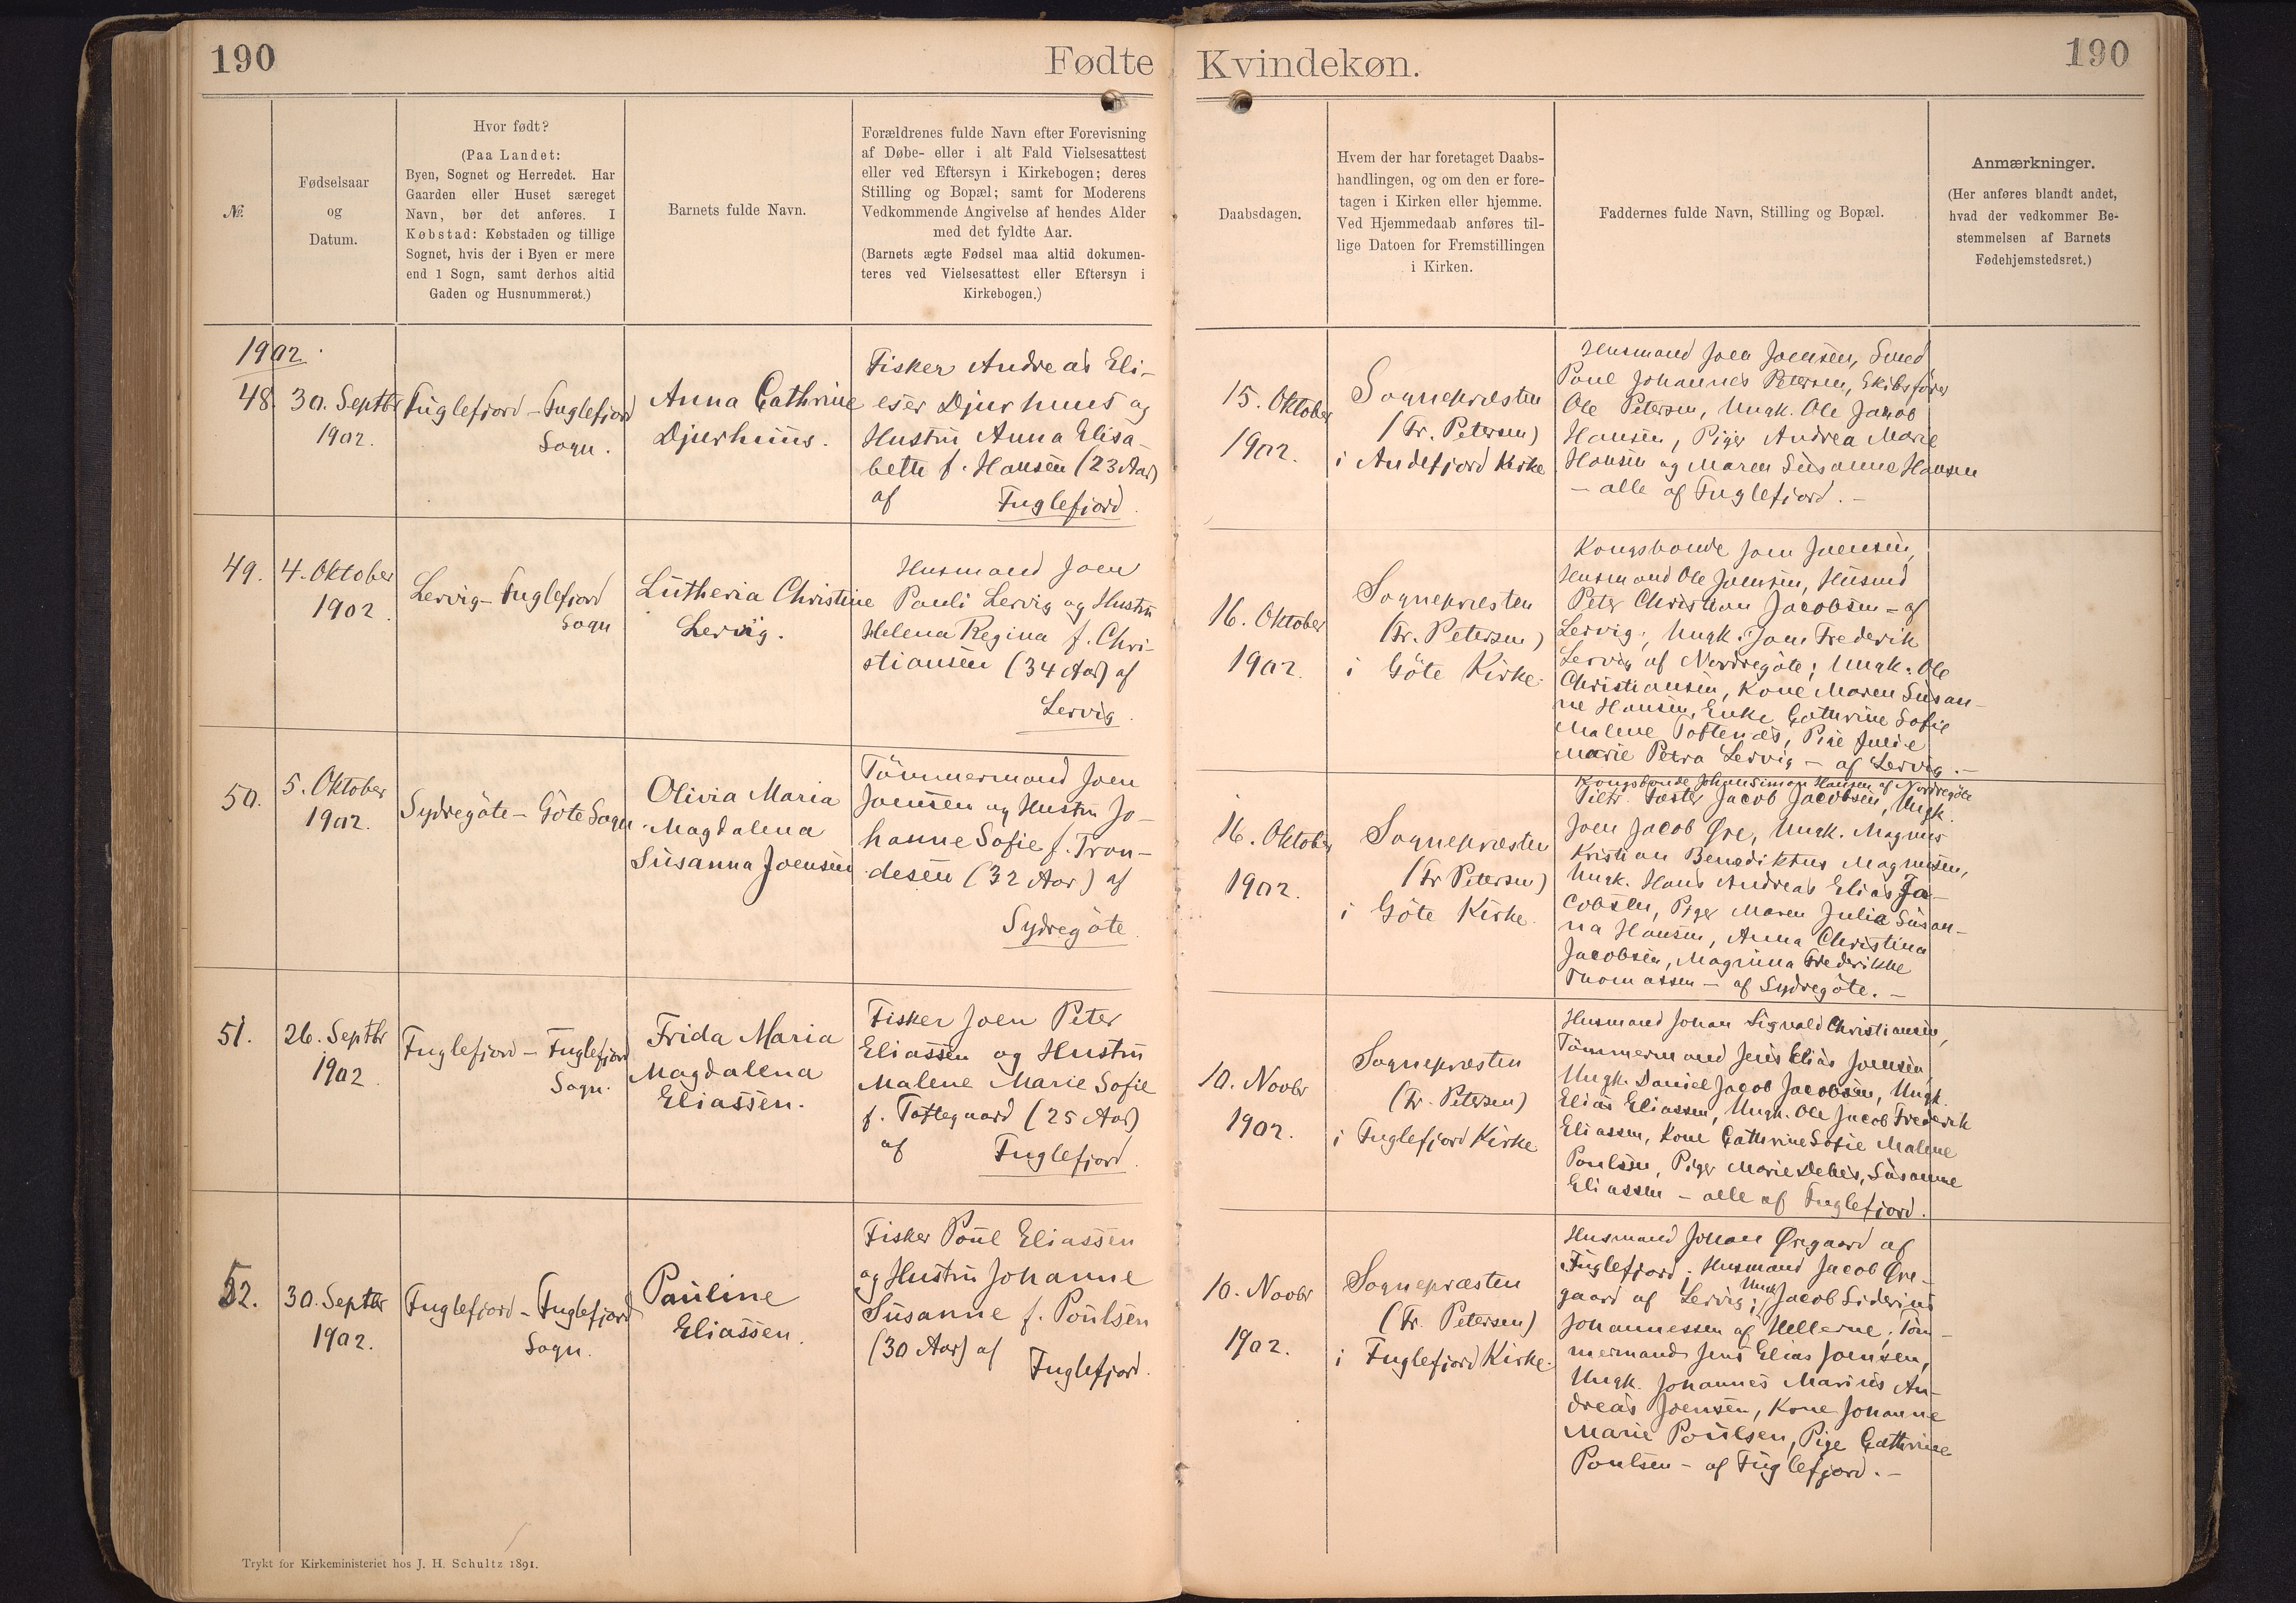 190
Fødte
Kvindekøn.
190
№
Fødselsaar
og
Datum.
Hvor født?
(Paa Landet:
Byen, Sognet og Herredet. Har
Gaarden eller Huset særeget
Navn, bør det anføres. I
Købstad: Købstaden og tillige
Sognet, hvis der i Byen er mere
end 1 Sogn, samt derhos altid
Gaden og Husnummeret.)
Barnets fulde Navn.
Forældrenes fulde Navn efter Forevisning
af Døbe- eller i alt Fald Vielsesattest
eller ved Eftersyn i Kirkebogen; deres
Stilling og Bopæl; samt for Moderens
Vedkommende Angivelse af hendes Alder
med det fyldte Aar.
(Barnets ægte Fødsel maa altid dokumen-
teres ved Vielsesattest eller Eftersyn i
Kirkebogen.)
Daabsdagen.
Hvem der har foretaget Daabs-
handlingen, og om den er fore-
tagen i Kirken eller hjemme.
Ved Hjemmedaab anføres til-
lige Datoen for Fremstillingen
i Kirken.
Faddernes fulde Navn, Stilling og Bopæl.
Anmærkninger.
(Her anføres blandt andet,
hvad der vedkommer Be-
stemmelsen af Barnets
Fødehjemstedsret.)
1902.
48.
30. Septbr
1902.
Fuglefjord - Fuglefjord
Sogn.
Anna Cathrine
Djurhuus.
Fisker Andreas Eli-
eser Djurhuus og
Hustru Anna Elisa-
beth f. Hansen (23 Aar)
af Fuglefjord.
15. Oktober
1902.
Sognepræsten
(Fr. Petersen)
i Andefjord Kirke
Husmand Joen Joensen, Smed
Poul Johannes Petersen, Skibsfører
Ole Petersen, Ungk. Ole Jakob
Hansen, Piger Andrea Marie
Hansen og Maren Susanne Hansen
- alle af Fuglefjord. -
49.
4. Oktober
1902.
Lervig - Fuglefjord
Sogn
Lutheria Christine
Lervig.
Husmand Joen
Pauli Lervig og Hustru
Helena Regina f. Chri-
stiansen (34 Aar) af
Lervig.
16. Oktober
1902.
Sognepræsten
(Fr. Petersen)
i Göte Kirke.
Kongsbonde Joen Joensen,
Husmand Ole Joensen, Husmd
Peter Christian Jacobsen - af
Lervig; Ungk. Joen Frederik
Lervig af Nordregöte; Ungk. Ole
Christiansen, Kone Maren Susan-
ne Hansen, Enke Cathrine Sofie
Malene Toftenæs, Pige Julie
Marie Petra Lervig - af Lervig. -
50.
5. Oktober
1902.
Sydregöte - Göte Sogn
Olivia Maria
Magdalena
Susanna Joensen
Tömmermand Joen
Joensen og Hustru Jo-
hanne Sofie f. Tron-
desen (32 Aar) af
Sydregöte.
16. Oktober
1902.
Sognepræsten
(Fr Petersen)
i Göte Kirke.
Kongsbonde Johan Simon Hansen af Nordregöte
Fæster Jacob Jacobsen, Ungk.
Joen Jacob Øre, Ungk. Magnus
Kristian Benediktus Magnusen,
Ungk. Hans Andreas Elias Ja-
cobsen, Piger Maren Julia Susan-
na Hansen, Anna Christina
Jacobsen, Magnina Frederikke
Thomassen - af Sydregöte. -
51.
26. Septbr
1902.
Fuglefjord - Fuglefjord
Sogn.
Frida Maria
Magdalena
Eliassen.
Fisker Joen Peter
Eliassen og Hustru
Malene Marie Sofie
f. Toftegaard (25 Aar)
af Fuglefjord.
10. Novbr
1902.
Sognepræsten
(Fr. Petersen)
i Fuglefjord Kirke
Husmand Johan Sigvald Christiansen,
Tömmermand Jens Elias Joensen,
Ungk. Daniel Jacob Jacobsen, Ungk.
Elias Eliassen, Ungk. Ole Jacob Frederik
Eliassen, Kone Cathrine Sofie Malene
Poulsen, Piger Marie Debes, Susanne
Eliassen - alle af Fuglefjord.
52.
30. Septbr
1902.
Fuglefjord - Fuglefjord
Sogn.
Pauline
Eliassen.
Fisker Poul Eliassen
og Hustru Johanne
Susanne f. Poulsen
(30 Aar) af
Fuglefjord.
10. Novbr
1902.
Sognepræsten
(Fr. Petersen)
i Fuglefjord Kirke.
Husmand Johan Øregaard af
Fuglefjord; Husmand Jacob Øre-
gaard af Lervig; Ungk. Jacob Siderius
Johannessen af Hellerne; Töm-
mermand Jens Elias Joensen,
Ungk. Johannes Marius An-
dreas Joensen, Kone Johanne
Marie Poulsen, Pige Cathrine
Poulsen - af Fuglefjord. -
Trykt for Kirkeministeriet hos J. H. Schultz 1891.